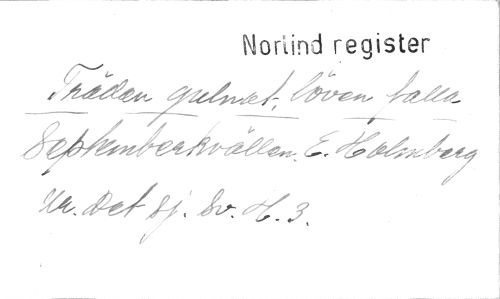 Norlind register
Trädan gulnat, löven falla
Septemberkvällen. E. Holmberg
Ur. Det sj. Sv. H. 3.